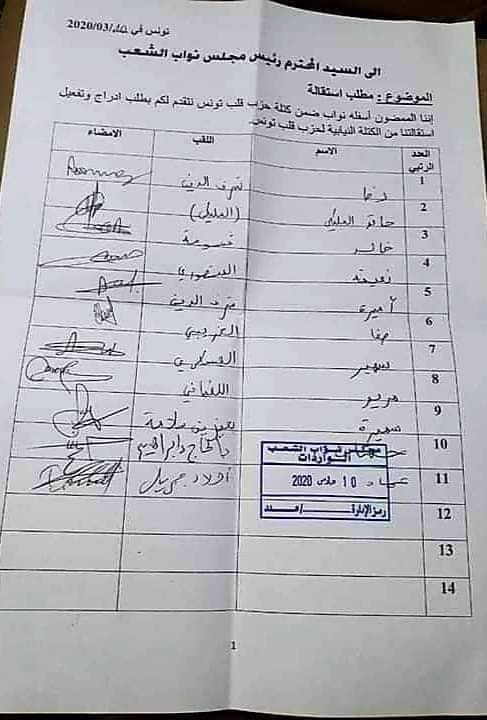 تونس في 10/03/2020
الى السيد المحترم رئيس مجلس نواب الشعب
الموضوع : مطلب استقالة
إننا الممضون أسفله نواب ضمن كتلة حزب قلب تونس نتقدم لكم بطلب ادراج وتفعيل
استقالتنا من الكتلة النيابية لحزب قلب تونس.
العدد الرتبي الاسم اللقب الامضاء
1 رضا شرف الدين
2 حاتم المليكي (المليكي)
3 خالد قسومة
4 نعيمة المنصوري
5 أميرة شرف الدين
6 صفا الغريبي
7 سهير العسكري
8 مريم اللغماني
9 سميرة
10 بالحاج ابراهيم
11 عماد أولاد جبريل
مجلس نواب الشعب
الواردات
10 مارس 2020
رمز الإدارة / عدد
12
13
14
1